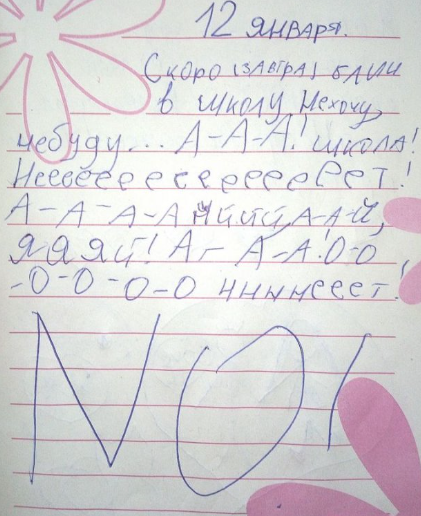 12 января.
Скоро (завтра) блин
в школу Нехочу,
небуду... А-А-А! школа!
Неееееееееееееет!
А-А-А-А ййййй, А-А-Й,
ЯЯЯЙ! А- А-А!О-О
-О-О-О-О ннннееет!
NO!